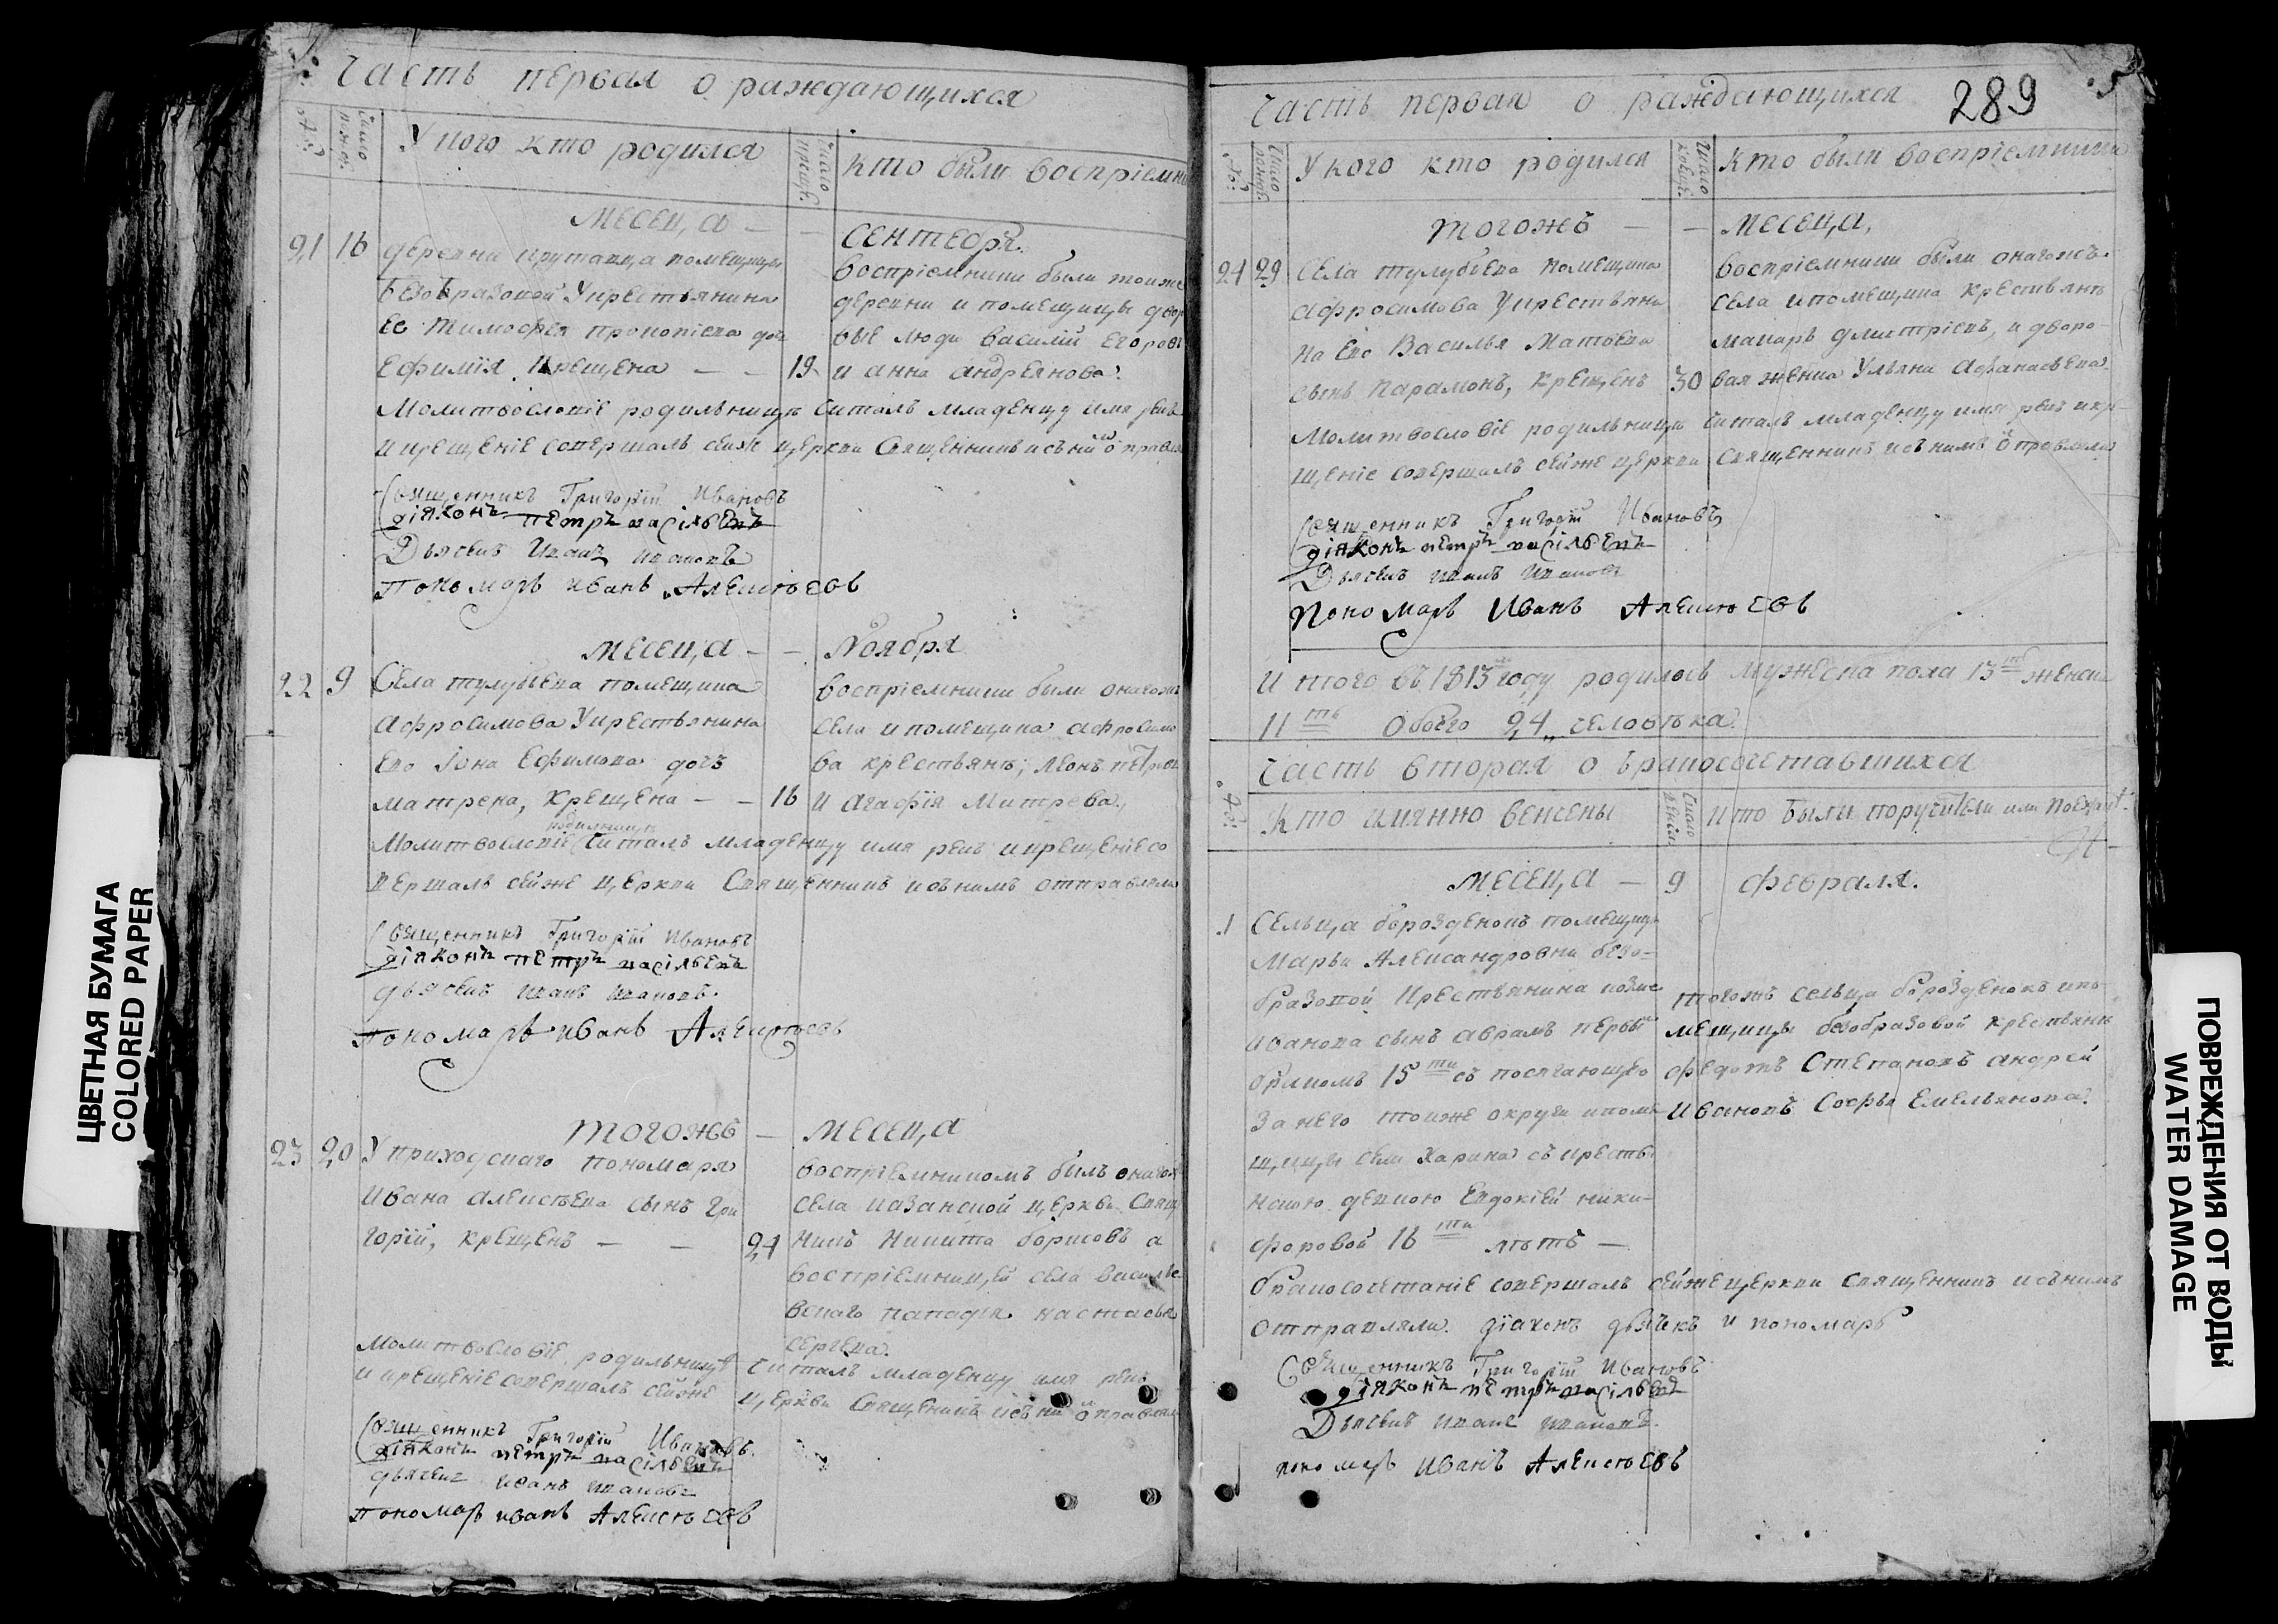 Часть первая о раждающихся
У кого кто родился
Кто были восприемни
Месеца — — Сентебря.
21 16 деревни Крутавца помещицы
Безобразовой У крестьянина
Ее Тимофея Прокопиева дочь
Ефимiя. Крещена — — 19
воспрiемники были тоиже
деревни и помещицы двор
выe люди Василiй Егоров
и Анна Андреянова.
Молитвословiе родильнице читалъ младенцу имя рекъ
и крещенiе совершалъ сейже церкви Священникъ и съ ни отправля
Священникъ Григорiй Ивановъ
дiяконъ петръ васiльевъ
Дьячекъ Иванъ Ивановъ
Пономарь иванъ Алексѣевъ
Месеца — — Ноября
22 9 Села тулубьева помещика
Афросимова У крестьянина
Ево Iона Ефимова дочь
Матрена, крещена — — 16
воспрiемники были онагожъ
села и помещика Афросимо
ва крестьянъ, Леонъ Петров
и Агафiя Митрева.
родильнице
Молитвословiе читалъ младенцу имя рекъ и крещенiе со
вершалъ сейже церкви Священникъ и сънимъ отправляли
Священникъ Григорiй Ивановъ
дiяконъ петръ васiльевъ
дьячекъ иванъ ивановъ.
Пономарь иванъ Алексѣевъ
Тогожъ — Месеца
23 20 У приходскаго пономаря
Ивана Алексѣева сынъ Гри
горiй, крещенъ — — 24
воспрiемникомъ былъ онагож
села Казанской церкви Свящ
никъ Никита Борисовъ а
воспрiемницей села Василье
вскаго попадья Настасья
Сергева.
Молитвословiе родильнице читалъ младенцу имя рекъ
и крещенiе совершалъ сейже церкви Священникъ и съ ни отправлял
Священникъ Григорiй Ивановъ.
дiяконъ петръ васiльевъ
дьячекъ иванъ ивановъ
Пономарь иванъ Алексѣевъ
289
Часть первая о раждающихся
У кого кто родился
Кто были воспрiемники
Тогожъ — — Месеца,
24 29 Села тулубьева помещика
Афросимова У крестьяни
на Ево Василья Матвева
сынъ Парамонъ, крещенъ 30
воспрiемники были онагожъ
села и помещика крестьянъ
Макаръ Дмитрiевъ, и дворо-
вая женка Ульяна Афанасьева.
Молитвословiе родильнице читалъ младенцу имя рекъ и кре-
щенiе совершалъ сейже церкви Священникъ и сънимъ отправляли
Священникъ Григорiй Ивановъ
дiяконъ петръ васiльевъ
Дьячекъ иванъ ивановъ
Пономарь Иванъ Алексѣевъ
И того въ 1813 году родилось мужеска пола 13ть женска
11ть Обоего 24 человѣка.
Часть вторая о бракосочетавшихся
Кто имянно венчены
Кто были поручители или поезжан:
Месеца — 9 февраля.
1 Сельца борозденокъ помещицы
Марьи Александровны безо-
бразовой Крестьянина
Иванова сынъ Аврамъ первы
бракомъ 15ти съ посягающею
за него тоиже округи и поме
щицы села Харина съ кресть
нскою девкою Евдокiей ники-
форовой 16ти лѣтъ —
тогожъ сельца борозденокъ и по-
мещицы безобразовой крестьяне
Федотъ Степановъ Андрей
Ивановъ Софья Емельянова.
бракосочетанiе совершалъ сейже церкви Священникъ и сънимъ
отправляли дiаконъ дьячекъ и пономарь
Священникъ Григорiй Ивановъ
дiяконъ петръ васiльевъ
Дьячекъ иванъ ивановъ.
пономарь Иванъ Алексѣевъ
ЦВЕТНАЯ БУМАГА
COLORED PAPER
ПОВРЕЖДЕНИЯ ОТ ВОДЫ
WATER DAMAGE